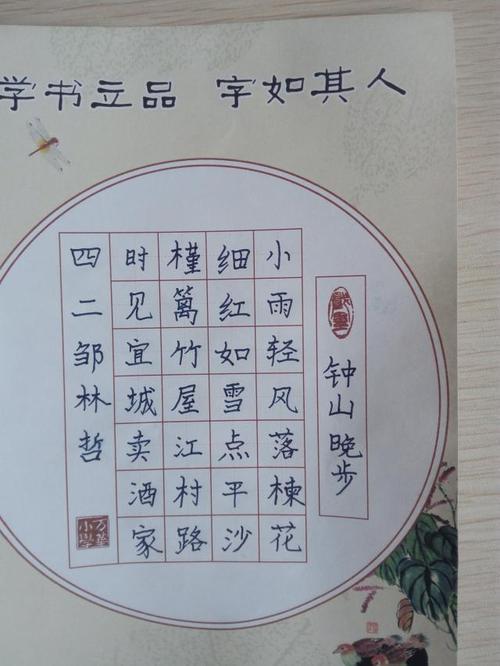 学书立品 字如其人
钟山晚步
小雨轻风落楝花
细红如雪点平沙
槿篱竹屋江村路
时见宜城卖酒家
四二邹林哲
万华小学